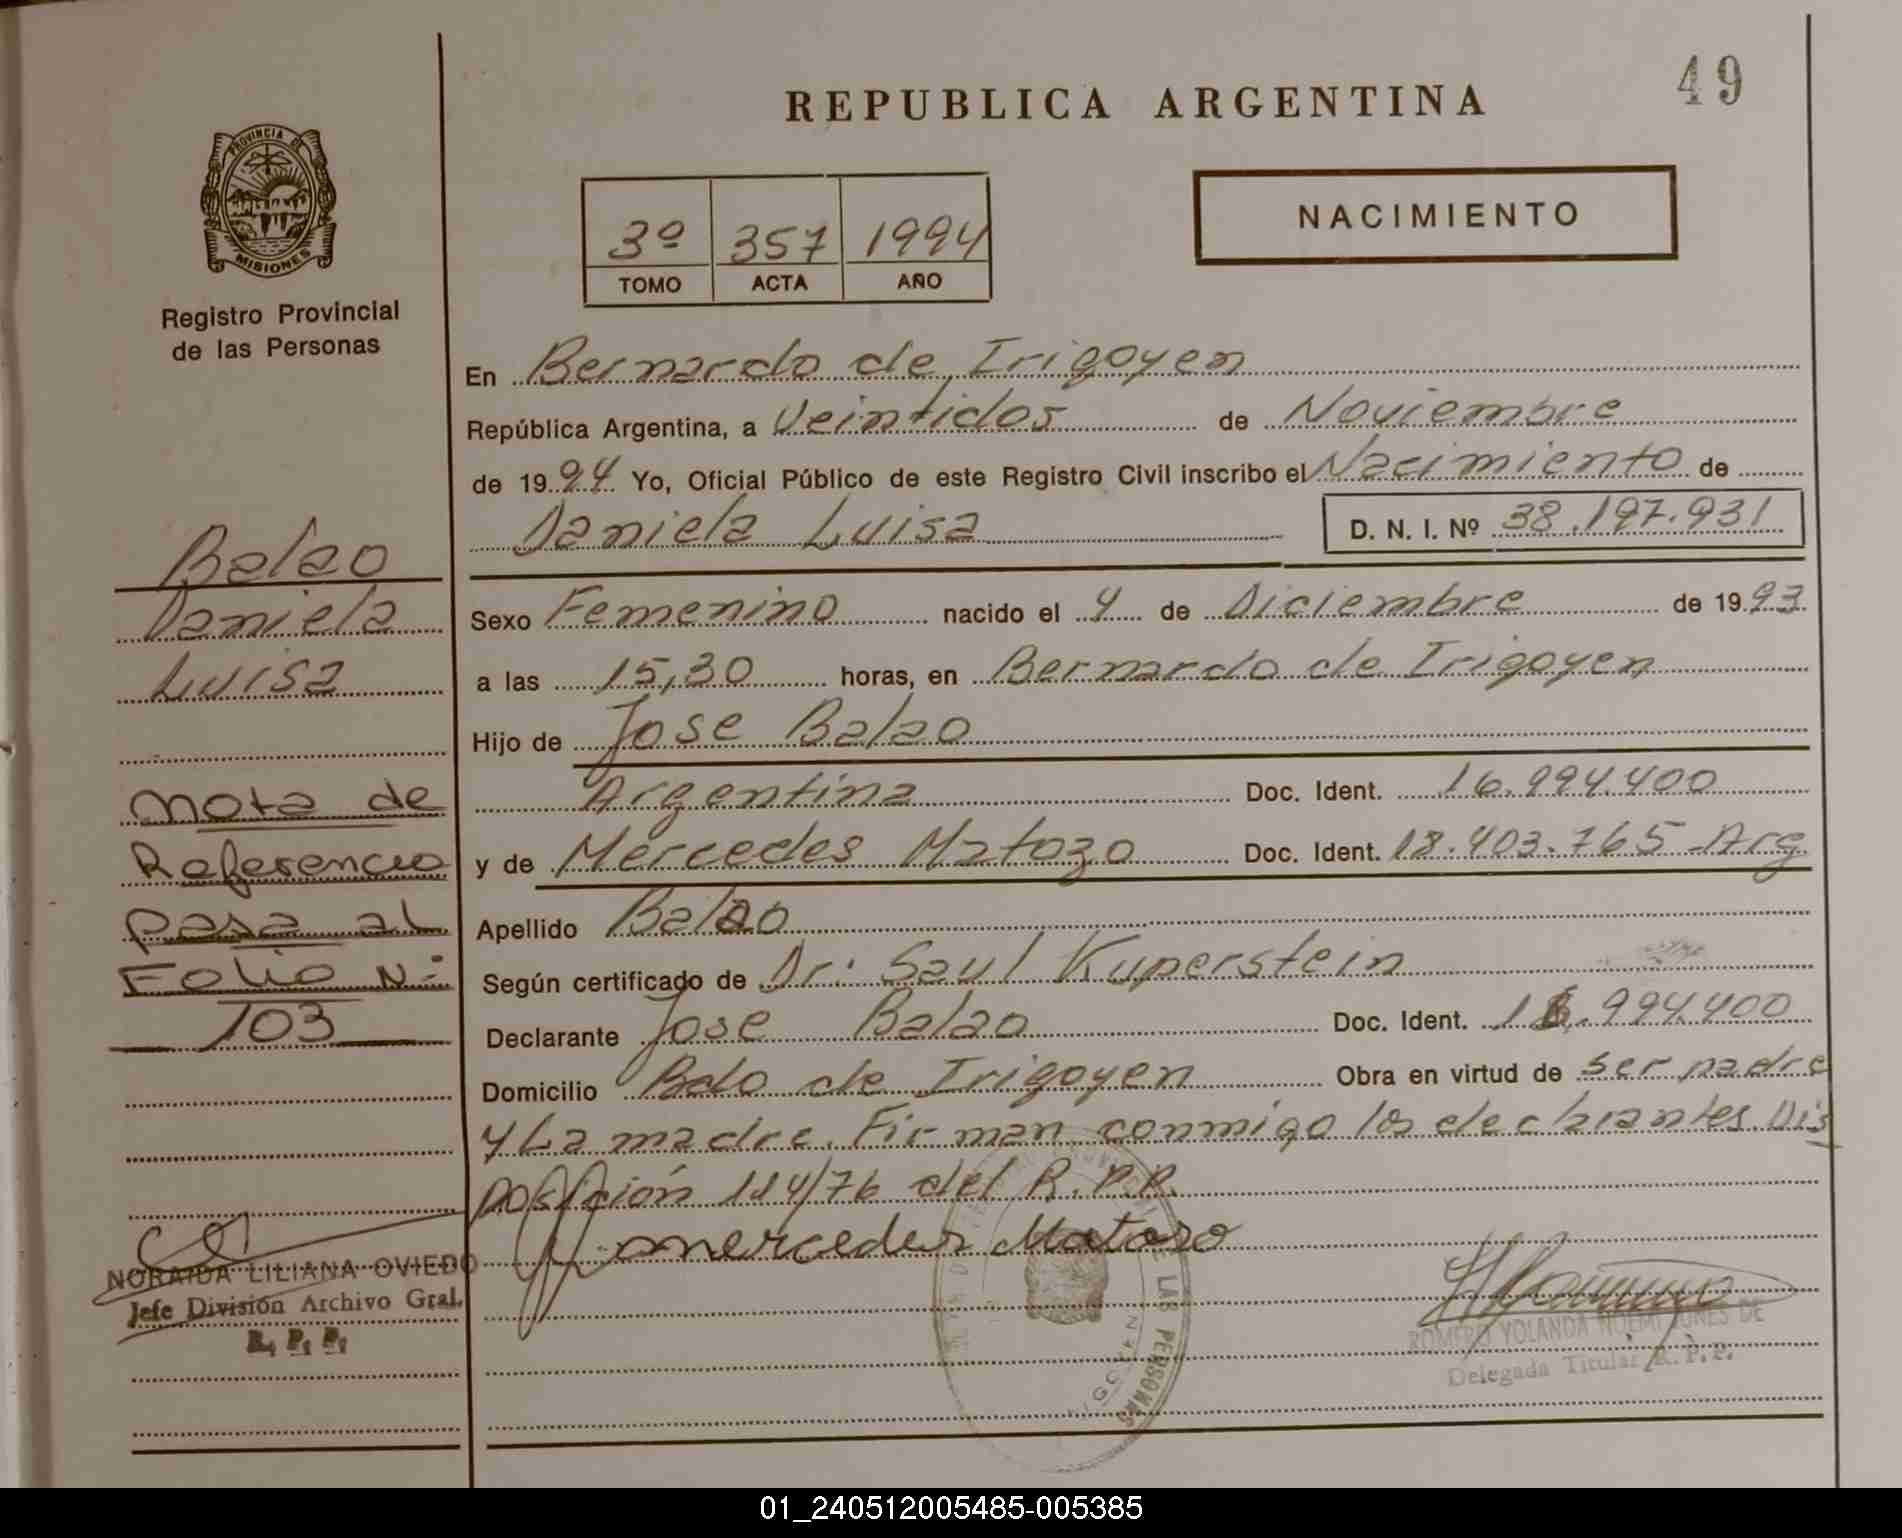 49
REPUBLICA ARGENTINA
PROVINCIA DE
MISIONES
Registro Provincial
de las Personas
3º 357 1994
TOMO ACTA AÑO
NACIMIENTO
En Bernardo de Irigoyen
República Argentina, a Veintidos de Noviembre
de 1994 Yo, Oficial Público de este Registro Civil inscribo el Nacimiento de
Daniela Luisa D. N. I. Nº 38.197.931
Balao
Daniela
Luisa
Nota de
Referencia
pasa al
Folio N:
103
Sexo Femenino nacido el 4 de Diciembre de 1993
a las 15,30 horas, en Bernardo de Irigoyen
Hijo de Jose Balao
Argentina Doc. Ident. 16.994.400
y de Mercedes Matozo Doc. Ident. 18.403.765 Arg
Apellido Balao
Según certificado de Dr: Saul Kuperstein
Declarante Jose Balao Doc. Ident. 16.994.400
Domicilio Bdo de Irigoyen Obra en virtud de ser padre
y La madre. Firman conmigo los declarantes. Dis
posición 114/76 del R.P.P.
mercedes Matoso
NORAIDA LILIANA OVIEDO
Jefe División Archivo Gral.
R. P. P.
LAS PERSONAS
ROMERO YOLANDA NOEMI JUNES DE
Delegada Titular R. P. P.
01_240512005485-005385